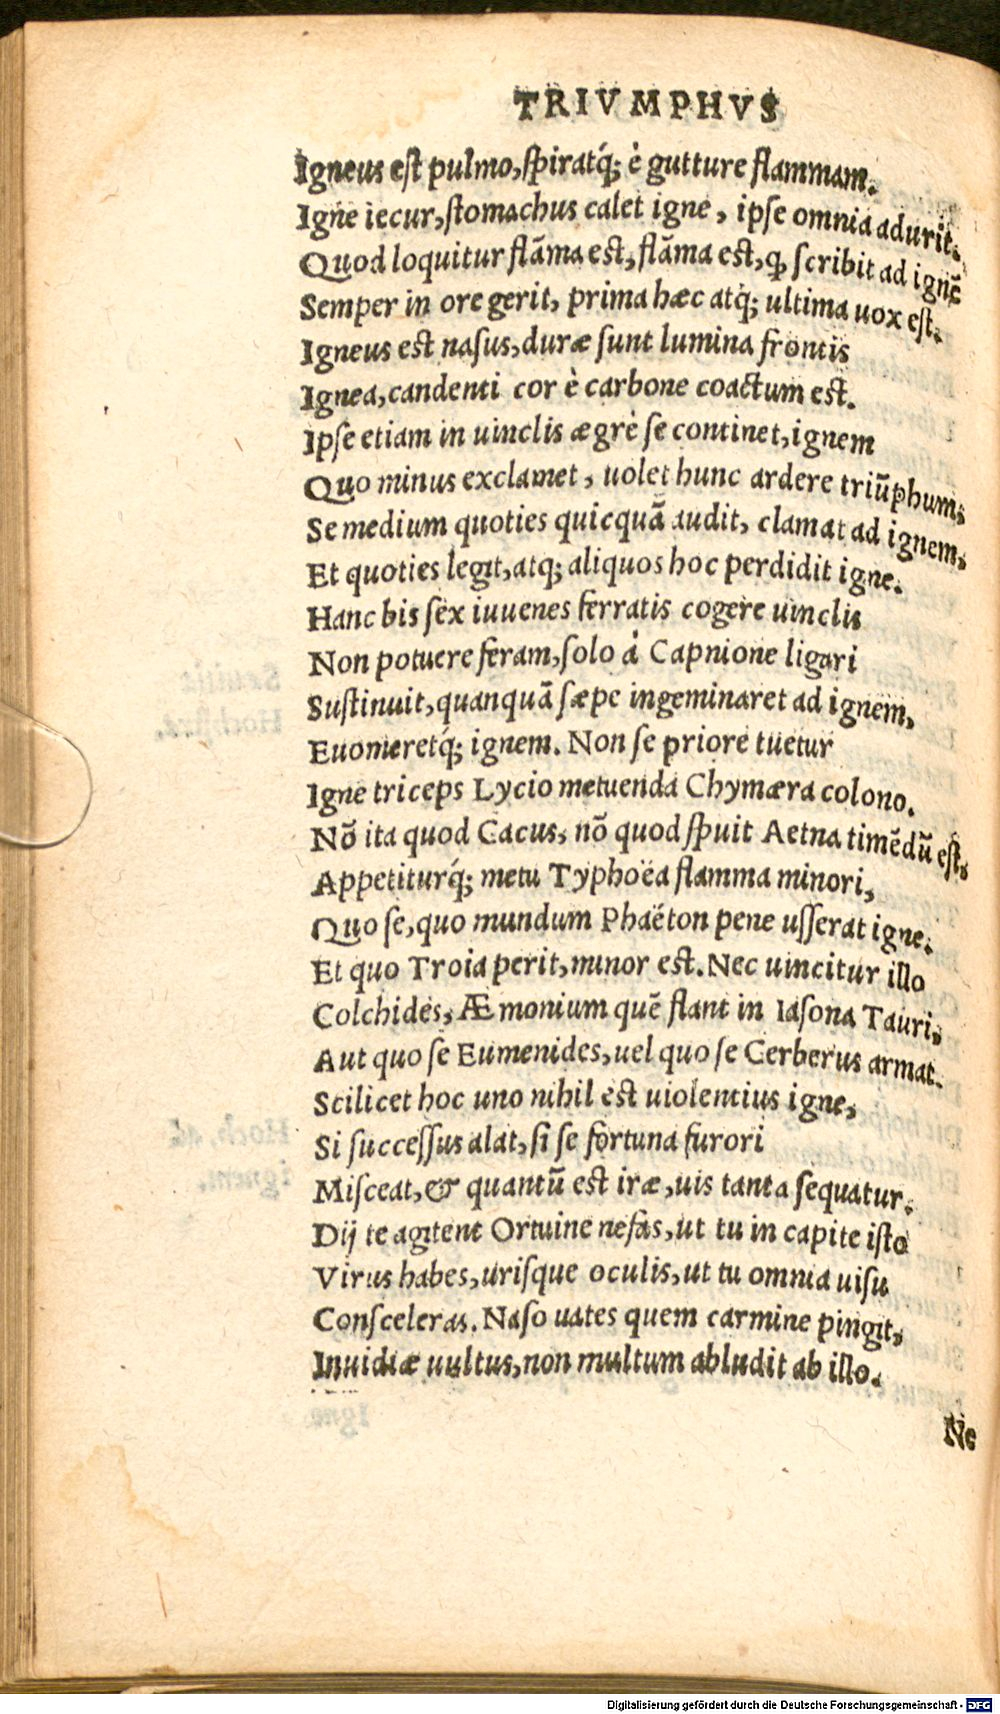 TRIVMPHVS
Igneus est pulmo, spiratq́; è gutture flammam.
Igne iecur, stomachus calet igne, ipse omnia adurit.
Quod loquitur flāma est, flāma est, ꝙ scribit ad ignē
Semper in ore gerit, prima hæc atq; ultima uox est.
Igneus est nasus, duræ sunt lumina frontis
Ignea, candenti cor è carbone coactum est.
Ipse etiam in uinclis ægrè se continet, ignem
Quo minus exclamet, uolet hunc ardere triūphum,
Se medium quoties quicquā audit, clamat ad ignem,
Et quoties legit, atq; aliquos hoc perdidit igne.
Hanc bis sex iuuenes ferratis cogere uinclis
Non potuere feram, solo à Capnione ligari
Sustinuit, quanquā sæpe ingeminaret ad ignem,
Euomeretq́; ignem. Non se priore tuetur
Igne triceps Lycio metuenda Chymæra colono.
Nō ita quod Cacus, nō quod spuit Aetna timēdū est,
Appetiturq́; metu Typhoëa flamma minori,
Quo se, quo mundum Phaëton pene usserat igne.
Et quo Troia perit, minor est. Nec uincitur illo
Colchides, Æmonium quē flant in Iasona Tauri,
Aut quo se Eumenides, uel quo se Cerberus armat.
Scilicet hoc uno nihil est uiolentius igne,
Si successus alat, si se fortuna furori
Misceat, & quantū est iræ, uis tanta sequatur.
Dij te agitent Ortuine nefas, ut tu in capite isto
Virus habes, urisque oculis, ut tu omnia uisu
Consceleras. Naso uates quem carmine pingit,
Inuidiæ uultus, non multum abludit ab illo.
Ne
Digitalisierung gefördert durch die Deutsche Forschungsgemeinschaft - DFG